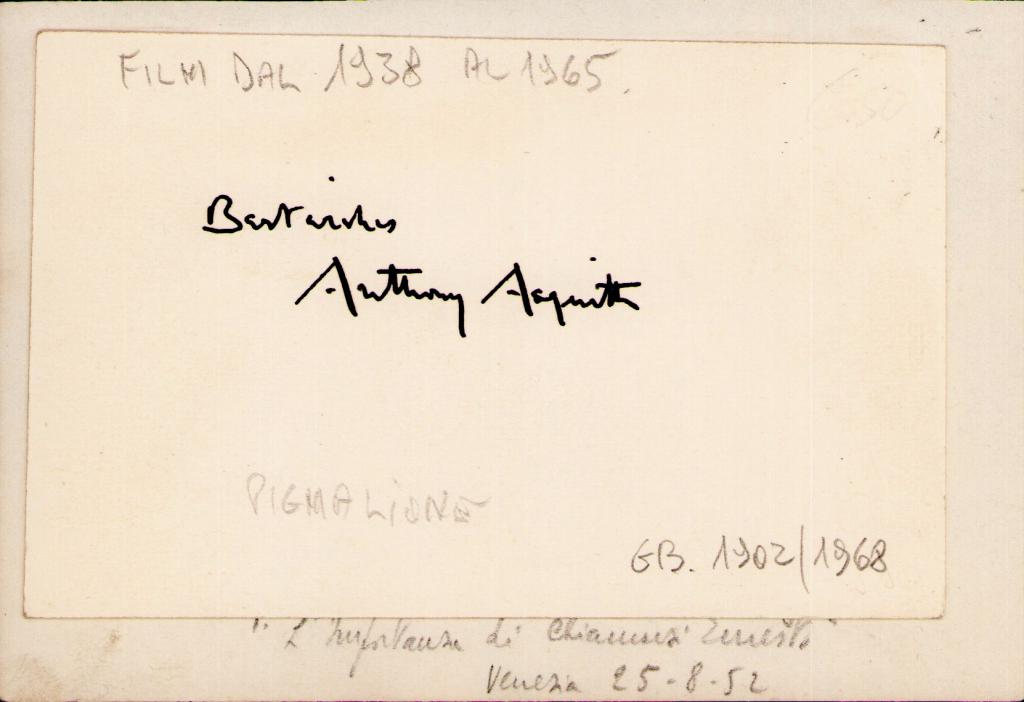 FILM DAL 1938 AL 1965.
Best wishes
Anthony Asquith
PIGMALIONE
GB. 1902/1968
"L'Importanza di Chiamarsi Ernesto"
Venezia 25-8-52